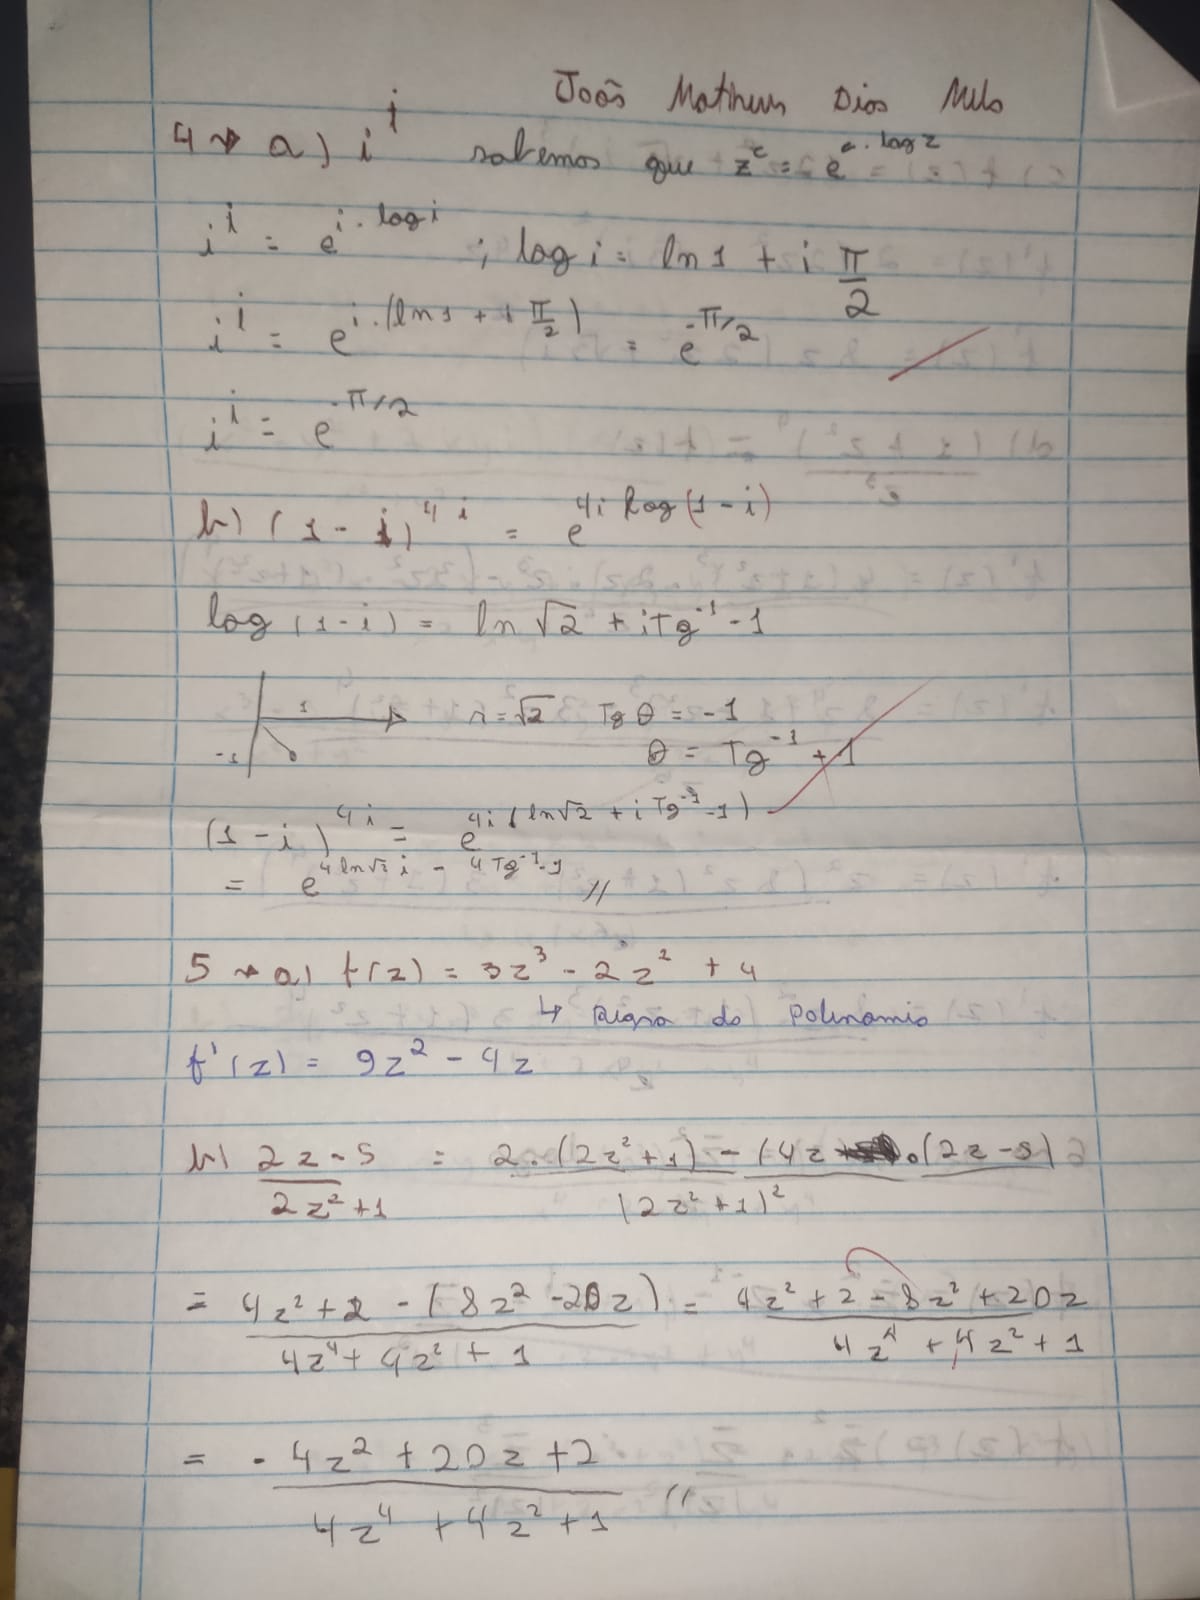 João Matheus Dias Melo
4 → a) i^i sabemos que z^c = e^{c · log z}
i^i = e^{i · log i} ; log i = ln 1 + i π/2
i^i = e^{i · (ln 1 + i π/2)} = e^{-π/2}
i^i = e^{-π/2}
b) (1 - i)^{4i} = e^{4i log(1 - i)}
log (1 - i) = ln √2 + i Tg^{-1} -1
1 r = √2 Tg θ = -1
-1 θ = Tg^{-1} + 1
(1 - i)^{4i} = e^{4i (ln √2 + i Tg^{-1} -1)}
= e^{4 ln √2 i - 4 Tg^{-1} -1} //
5 → a) f(z) = 3z³ - 2z² + 4
↳ Regra do Polinomio
f'(z) = 9z² - 4z
b) (2z - 5)/(2z² + 1) = (2 · (2z² + 1) - (4z · (2z - 5))/(2z² + 1)²
= (4z² + 2 - (8z² - 20z))/(4z⁴ + 4z² + 1) = (4z² + 2 - 8z² + 20z)/(4z⁴ + 4z² + 1)
= (-4z² + 20z + 2)/(4z⁴ + 4z² + 1) //